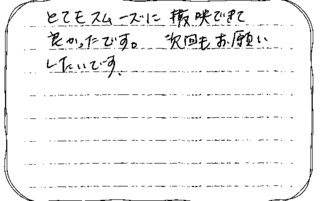 とてもスムーズに 撮映できて
良かったです。 次回も お願い
したいです。